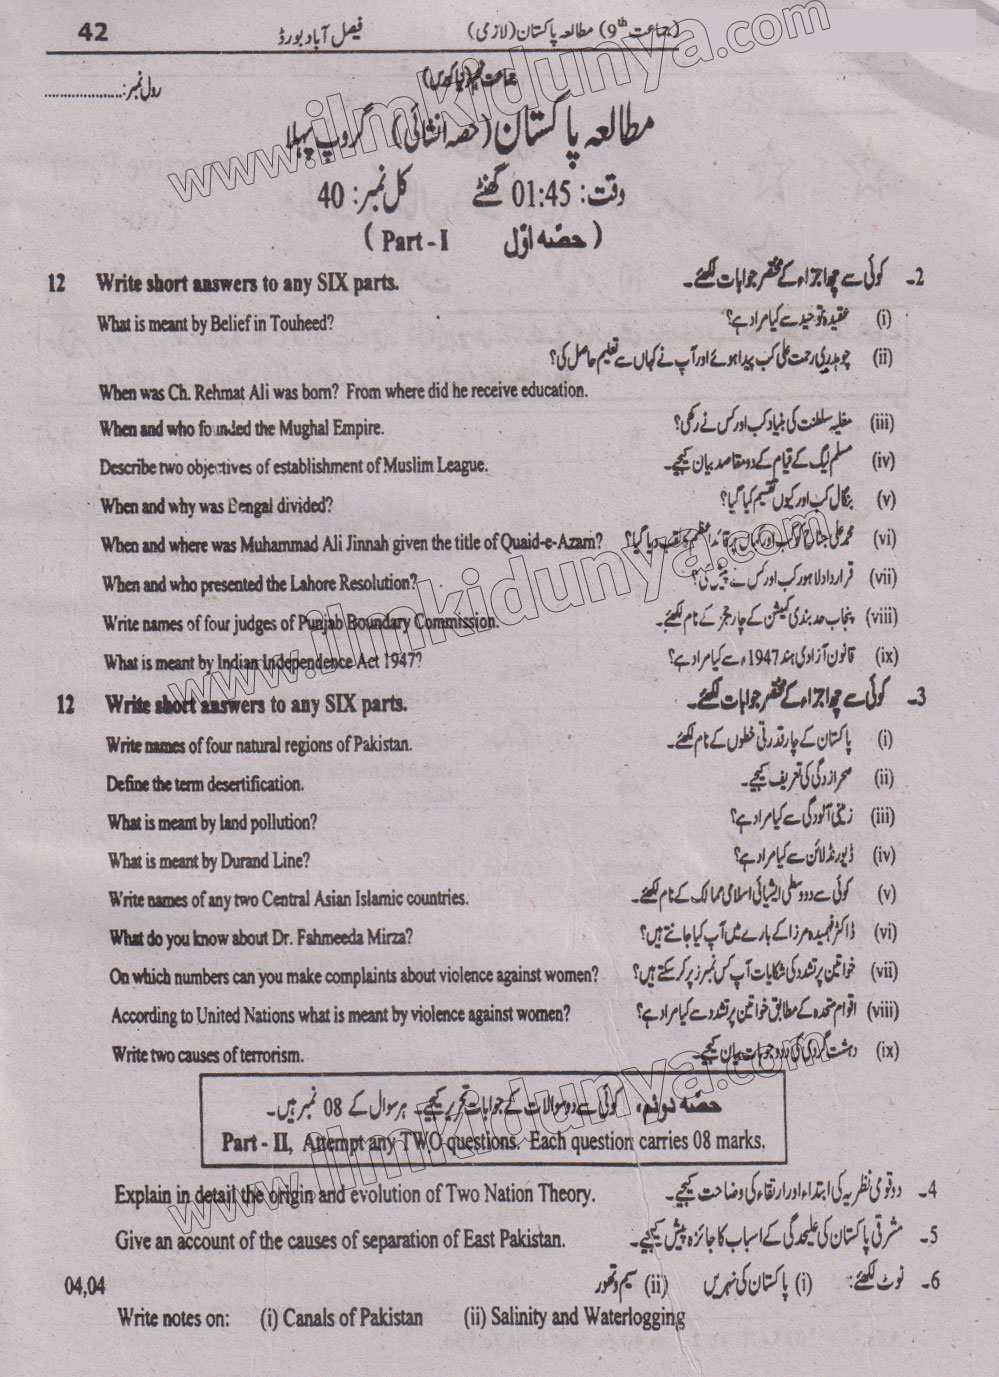 42 فیصل آباد بورڈ مطالعہ پاکستان (لازمی) (جماعت 9th)
رول نمبر:....................
مطالعہ پاکستان (حصہ انشائی) گروپ پہلا
وقت: 01:45 گھنٹے کل نمبر: 40
(حصہ اوّل Part - I)
2۔ کوئی سے چھ اجزاء کے مختصر جوابات لکھئے۔ Write short answers to any SIX parts. 12
(i) عقیدہ توحید سے کیا مراد ہے؟ What is meant by Belief in Touheed?
(ii) چوہدری رحمت علی کب پیدا ہوئے اور آپ نے کہاں سے تعلیم حاصل کی؟
When was Ch. Rehmat Ali was born? From where did he receive education.
(iii) مغلیہ سلطنت کی بنیاد کب اور کس نے رکھی؟ When and who founded the Mughal Empire.
(iv) مسلم لیگ کے قیام کے دو مقاصد بیان کیجیے۔ Describe two objectives of establishment of Muslim League.
(v) بنگال کب اور کیوں تقسیم کیا گیا؟ When and why was Bengal divided?
(vi) محمد علی جناح کو کب اور کہاں پر قائداعظم کا لقب دیا گیا؟ When and where was Muhammad Ali Jinnah given the title of Quaid-e-Azam?
(vii) قرارداد لاہور کب اور کس نے پیش کی؟ When and who presented the Lahore Resolution?
(viii) پنجاب حد بندی کمیشن کے چار ججز کے نام لکھئے۔ Write names of four judges of Punjab Boundary Commission.
(ix) قانون آزادی ہند 1947ء سے کیا مراد ہے؟ What is meant by Indian Independence Act 1947?
3۔ کوئی سے چھ اجزاء کے مختصر جوابات لکھئے۔ Write short answers to any SIX parts. 12
(i) پاکستان کے چار قدرتی خطوں کے نام لکھئے۔ Write names of four natural regions of Pakistan.
(ii) صحرازدگی کی تعریف کیجیے۔ Define the term desertification.
(iii) زمینی آلودگی سے کیا مراد ہے؟ What is meant by land pollution?
(iv) ڈیورنڈ لائن سے کیا مراد ہے؟ What is meant by Durand Line?
(v) کوئی سے دو وسطی ایشیائی اسلامی ممالک کے نام لکھئے۔ Write names of any two Central Asian Islamic countries.
(vi) ڈاکٹر فہمیدہ مرزا کے بارے میں آپ کیا جانتے ہیں؟ What do you know about Dr. Fahmeeda Mirza?
(vii) خواتین پر تشدد کی شکایات آپ کس نمبرز پر کر سکتے ہیں؟ On which numbers can you make complaints about violence against women?
(viii) اقوام متحدہ کے مطابق خواتین پر تشدد سے کیا مراد ہے؟ According to United Nations what is meant by violence against women?
(ix) دہشت گردی کی دو وجوہات بیان کیجیے۔ Write two causes of terrorism.
حصہ دوئم، کوئی سے دو سوالات کے جوابات تحریر کیجیے۔ ہر سوال کے 08 نمبر ہیں۔
Part - II, Attempt any TWO questions. Each question carries 08 marks.
4۔ دو قومی نظریہ کی ابتداء اور ارتقاء کی وضاحت کیجیے۔ Explain in detail the origin and evolution of Two Nation Theory.
5۔ مشرقی پاکستان کی علیحدگی کے اسباب کا جائزہ پیش کیجیے۔ Give an account of the causes of separation of East Pakistan.
6۔ نوٹ لکھئے: (i) پاکستان کی نہریں (ii) سیم و تھور 04,04
Write notes on: (i) Canals of Pakistan (ii) Salinity and Waterlogging
www.ilmkidunya.com
www.ilmkidunya.com
www.ilmkidunya.com